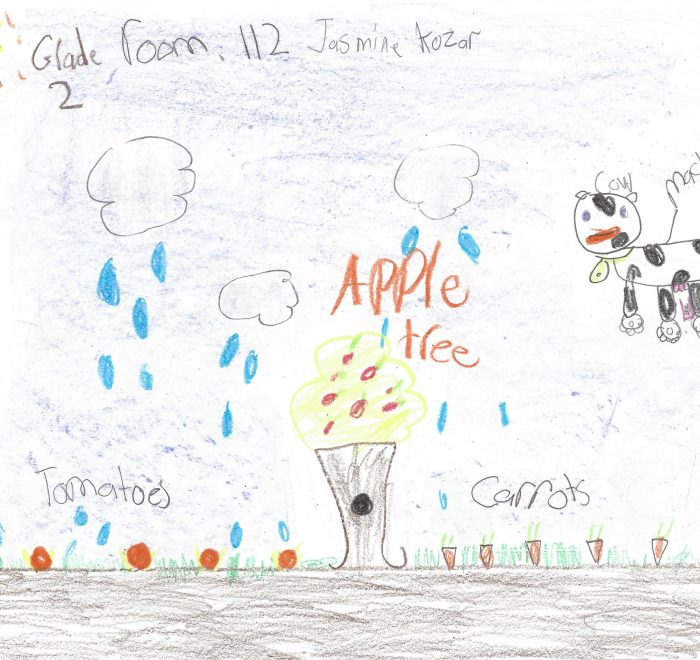 Grade Room: 112 Jasmine Kozar
2
Cow
Apple
tree
Tomatoes
Carrots